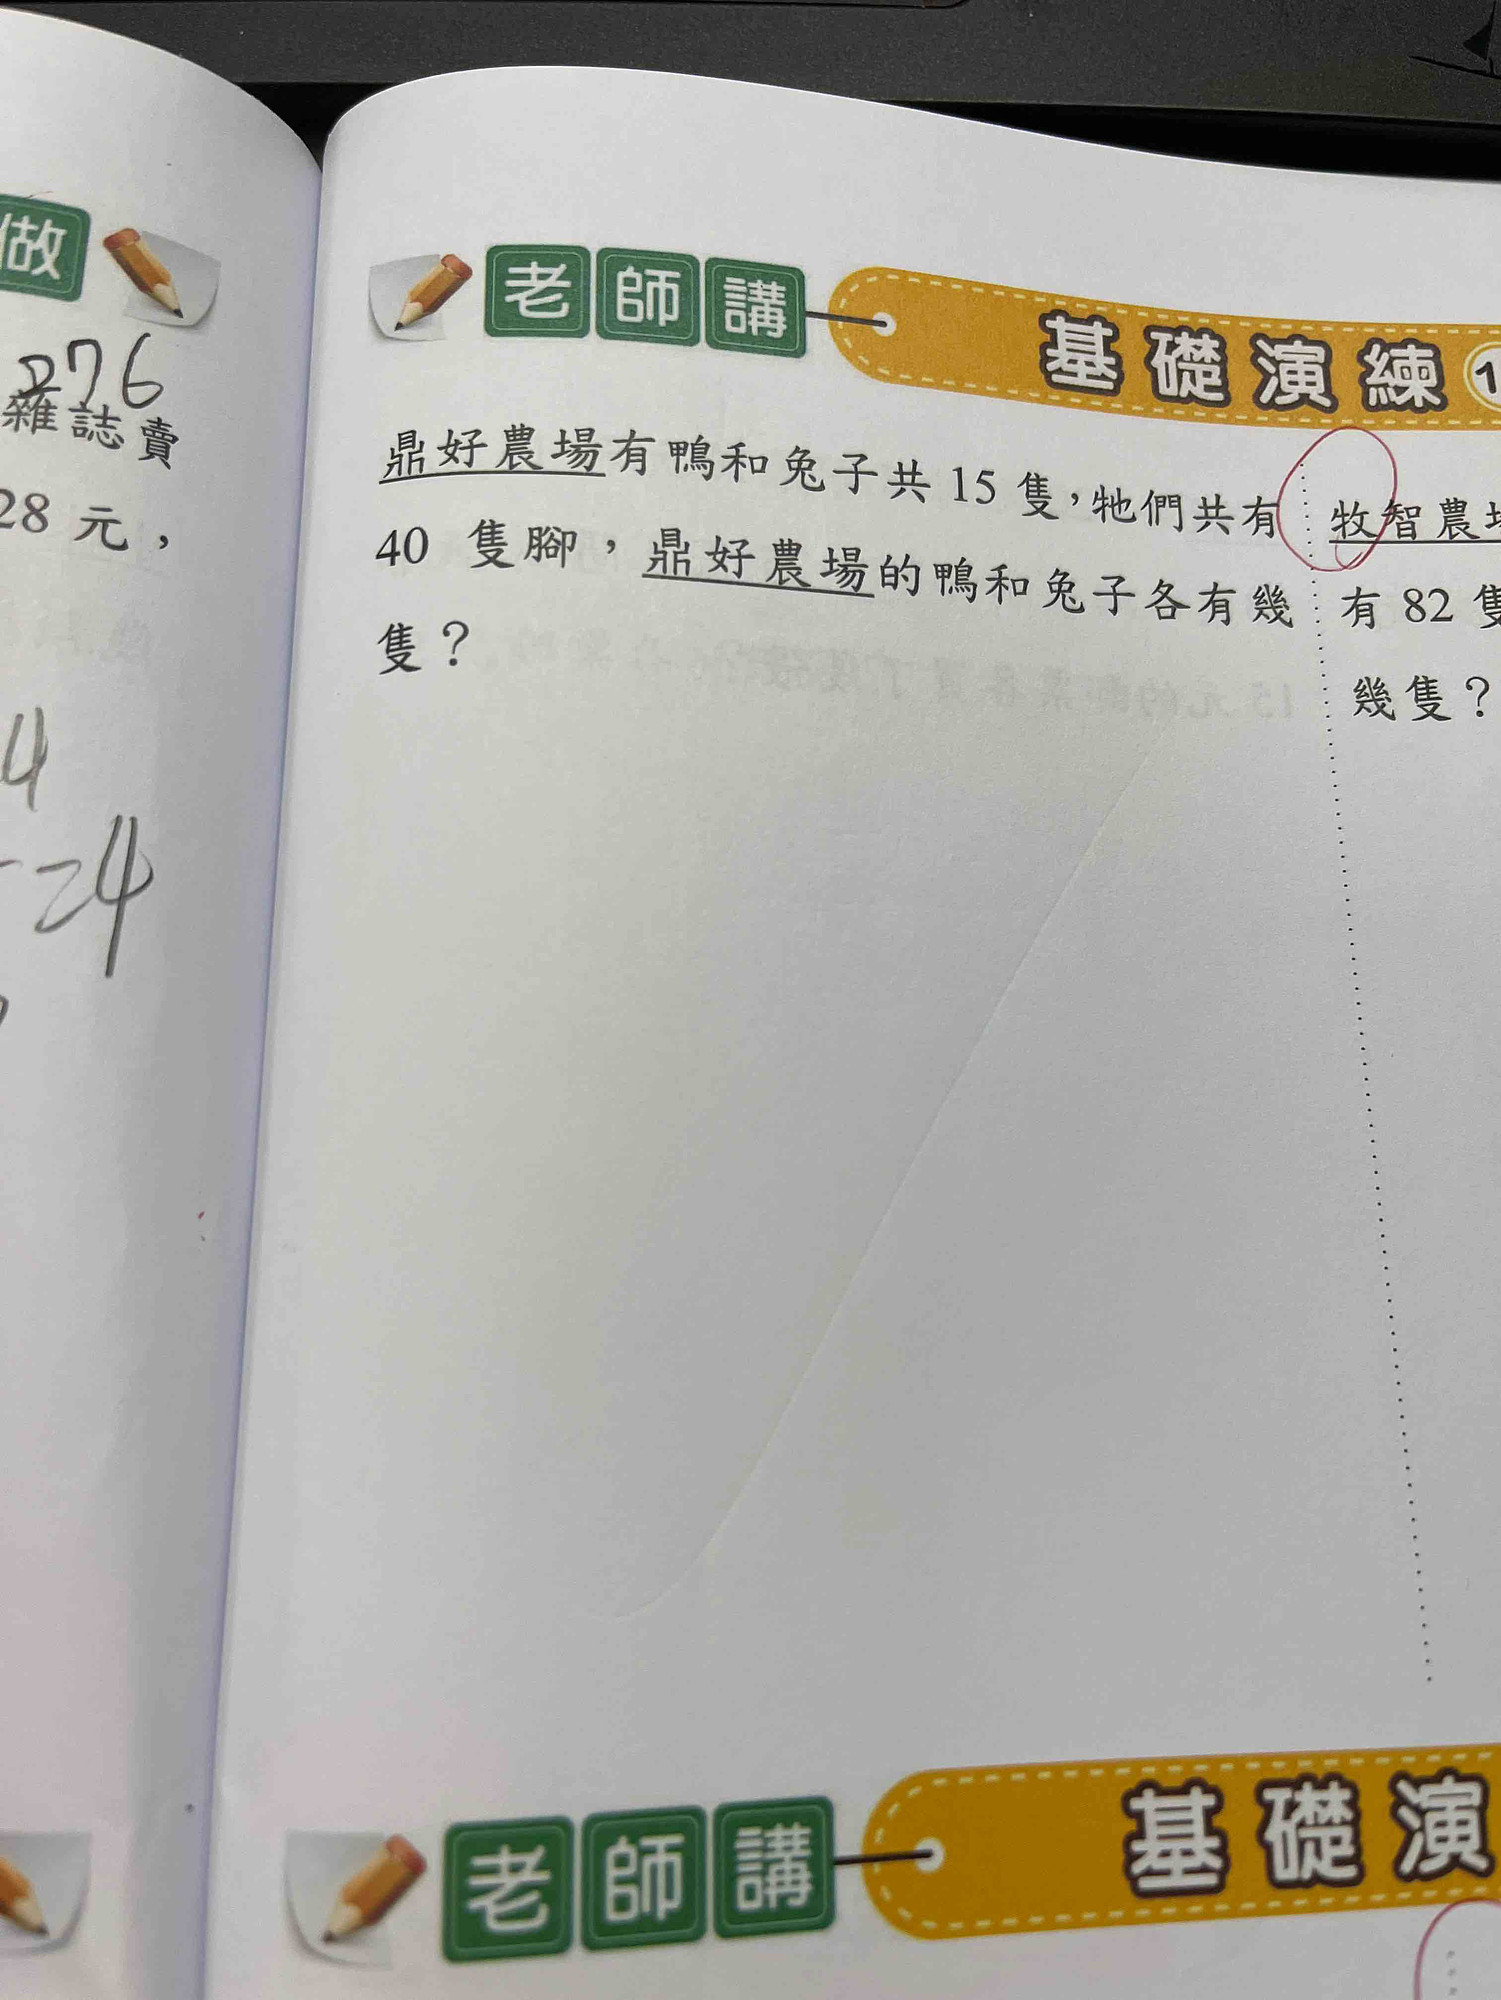 做
276
雜誌賣
28 元，
4
=4
老師講 基礎演練 1
鼎好農場有鴨和兔子共 15 隻，牠們共有
40 隻腳，鼎好農場的鴨和兔子各有幾
隻？
牧智農場
有 82 隻
幾隻？
老師講 基礎演